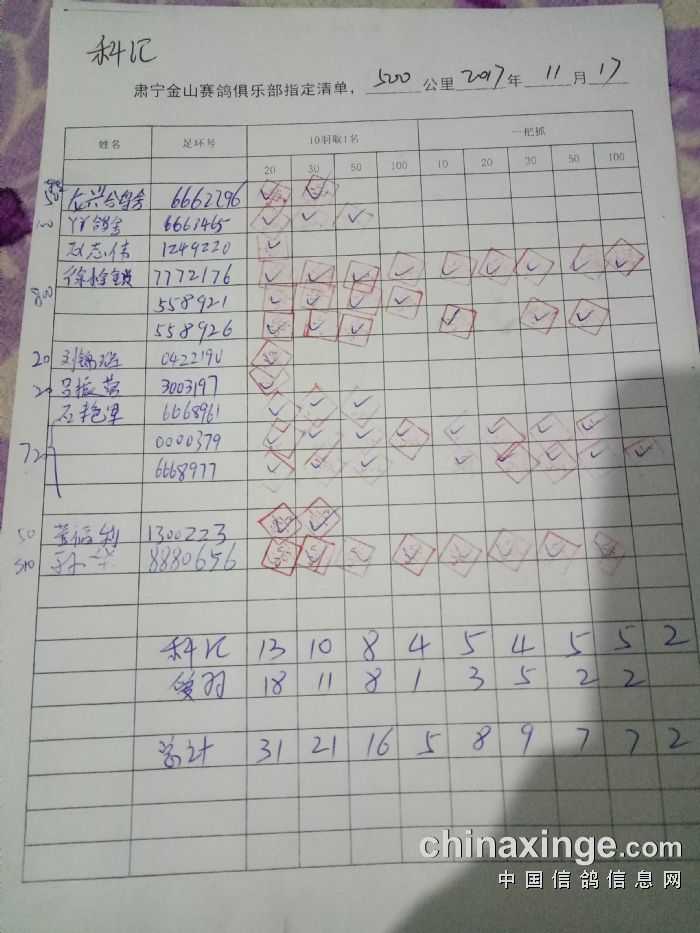 科汇
肃宁金山赛鸽俱乐部指定清单, 500 公里 2017 年 11 月 17
姓名 足环号 10羽取1名 一把抓
20 30 50 100 10 20 30 50 100
50 6662296 ✓ ✓
100 鸽舍 6661465 ✓ ✓ ✓
赵志伟 1249220 ✓
徐拴锁 7772176 ✓ ✓ ✓ ✓ ✓ ✓ ✓ ✓ ✓
800 558921 ✓ ✓ ✓ ✓
558926 ✓ ✓ ✓ ✓ ✓ ✓
20 刘锦 ✓
20 吕振 3003197 ✓
石艳 6668961 ✓ ✓ ✓
0000379 ✓ ✓ ✓ ✓ ✓ ✓ ✓ ✓
72 6668977 ✓ ✓ ✓ ✓ ✓ ✓ ✓ ✓
50 董福利 1300223 ✓ ✓
8880656 ✓ ✓ ✓ ✓ ✓ ✓ ✓ ✓
科汇 13 10 8 4 5 4 5 5 2
18 11 8 1 3 5 2 2
总计 31 21 16 5 8 9 7 7 2
chinaxinge.com
中国信鸽信息网